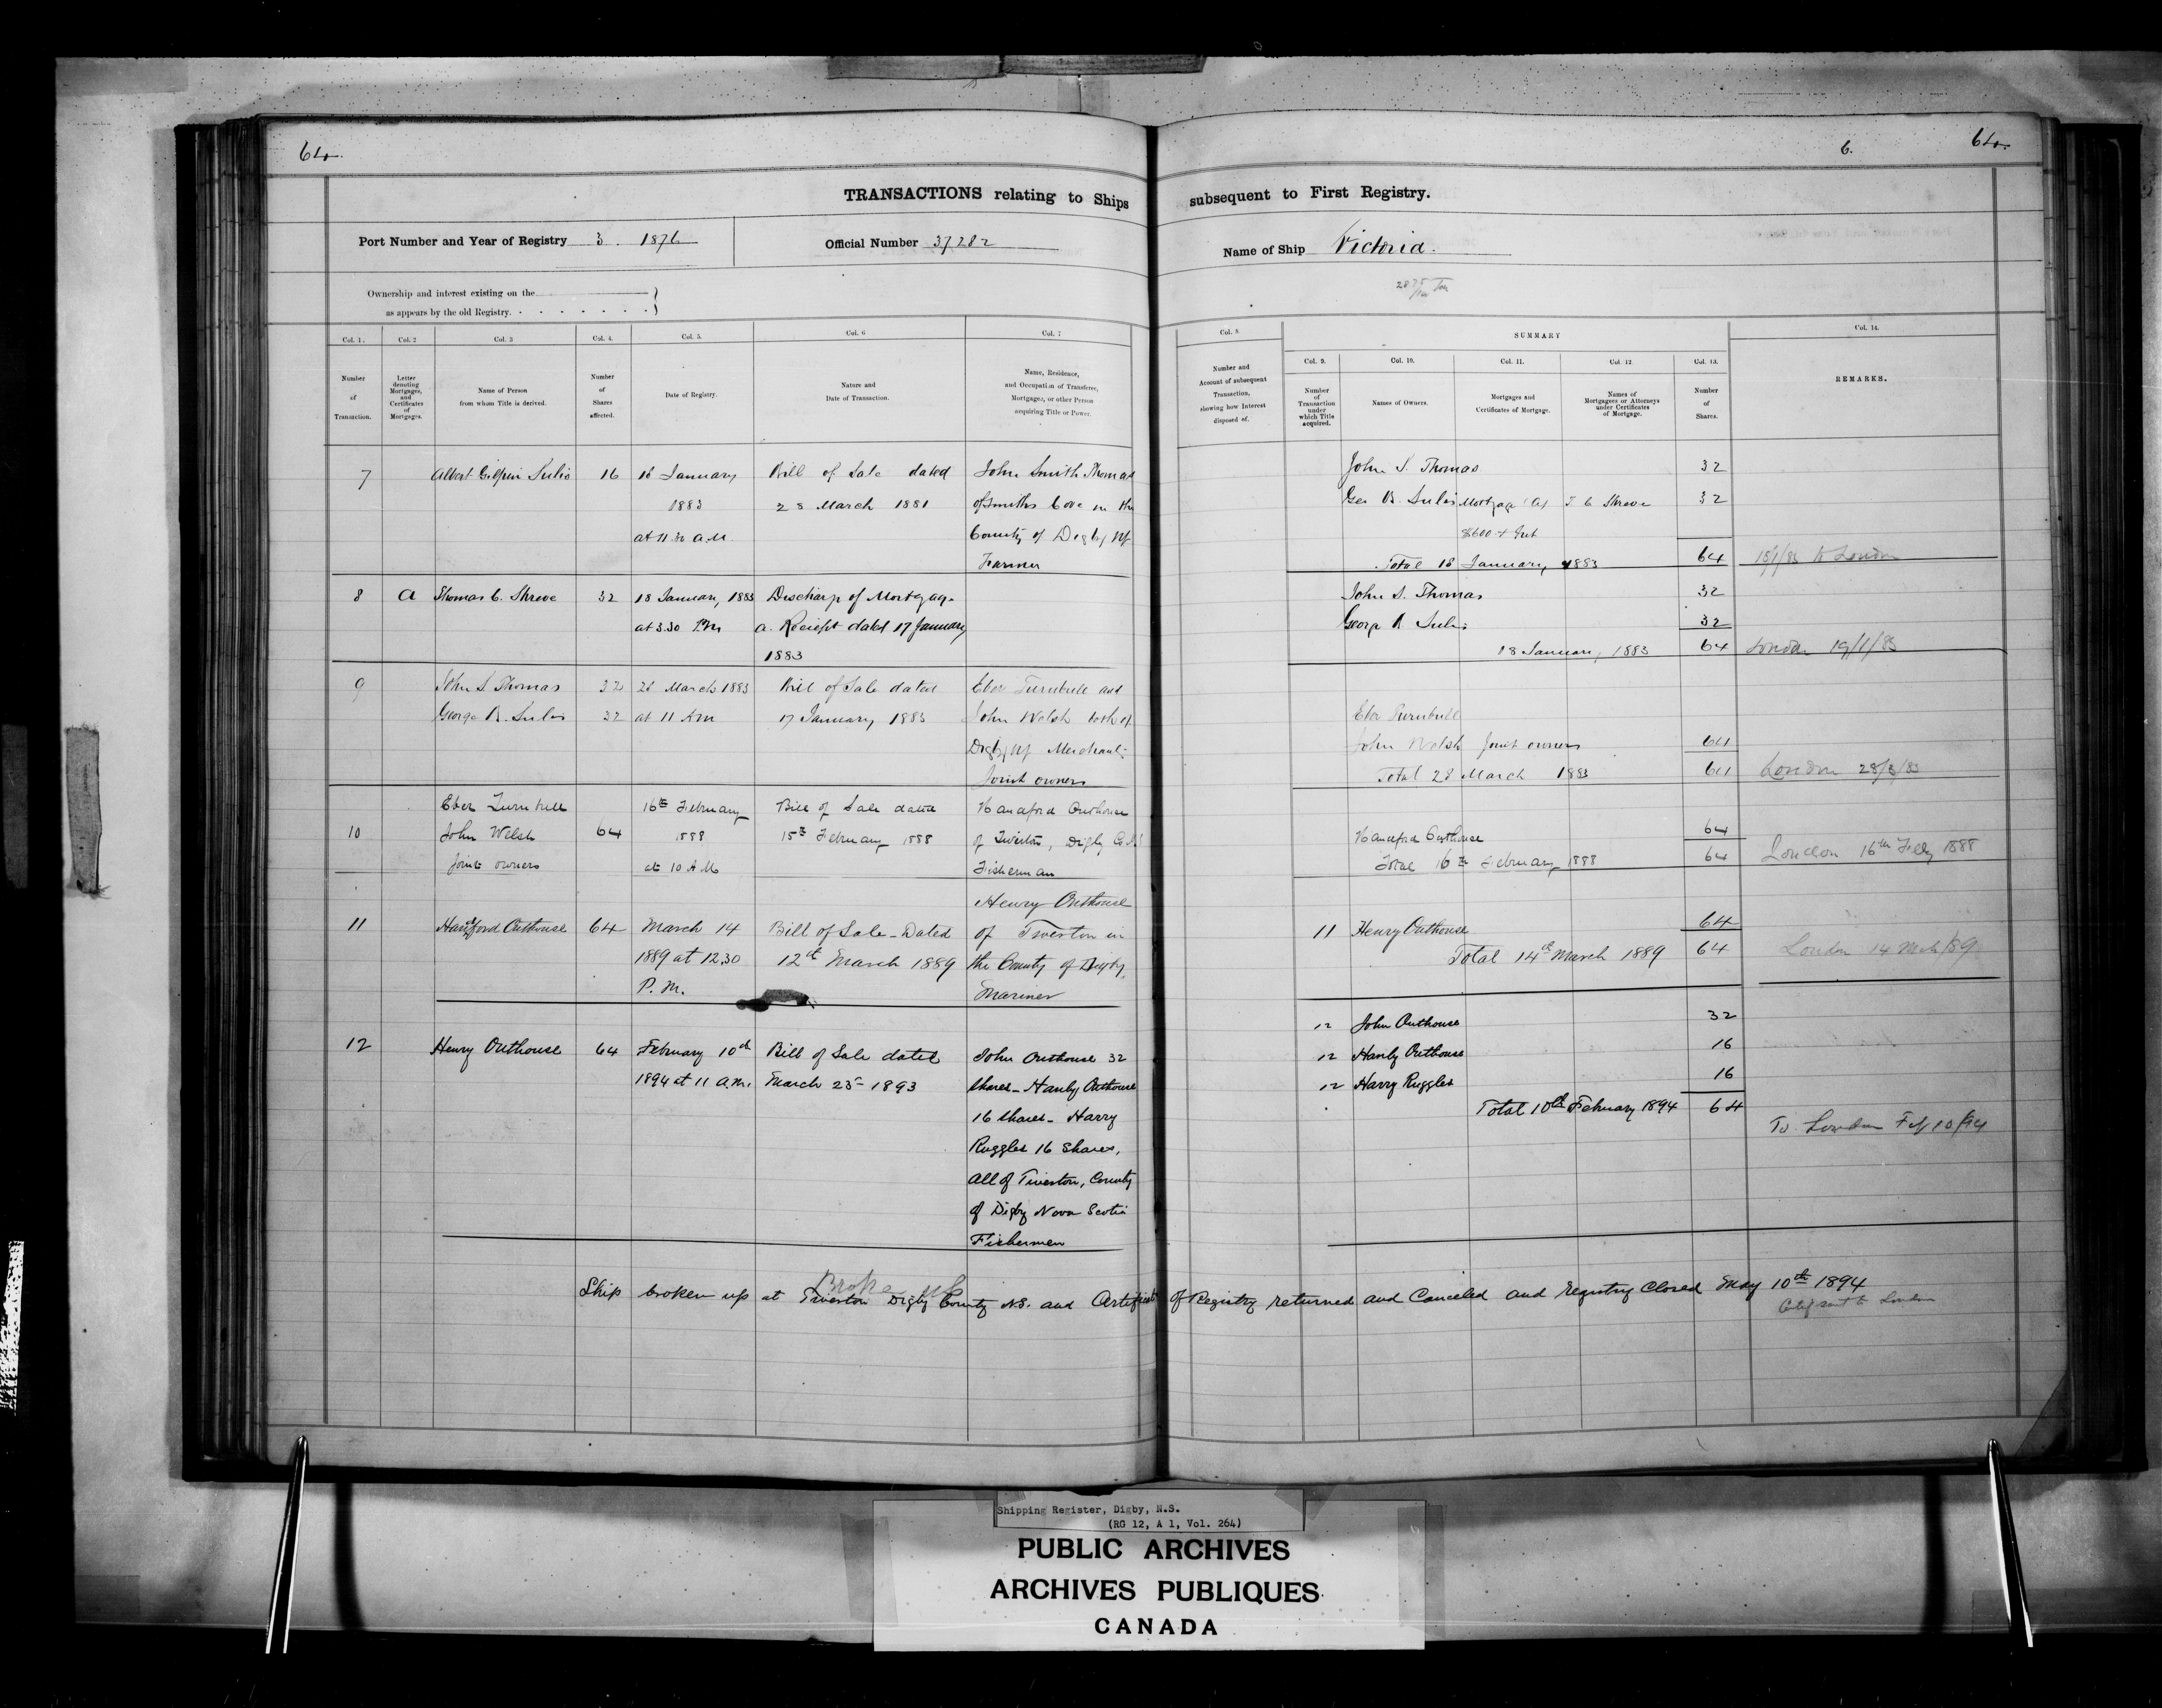 64.
6.
64.
TRANSACTIONS relating to Ships subsequent to First Registry.
Port Number and Year of Registry 3. 1876
Official Number 37282
Name of Ship Victoria.
Ownership and interest existing on the
as appears by the old Registry.
Col. 1.
Col. 2
Col. 3
Col. 4.
Col. 5.
Col. 6
Col. 7
Number
of
Transaction.
Letter
denoting
Mortgages,
and
Certificates
of
Mortgages.
Name of Person
from whom Title is derived.
Number
of
Shares
affected.
Date of Registry.
Nature and
Date of Transaction.
Name, Residence,
and Occupation of Transferee,
Mortgagee, or other Person
acquiring Title or Power.
Col. 8.
SUMMARY
Col. 14.
Number and
Account of subsequent
Transaction,
showing how Interest
disposed of.
Col. 9.
Col. 10.
Col. 11.
Col. 12.
Col. 13.
Number
of
Transaction
under
which Title
acquired.
Names of Owners.
Mortgages and
Certificates of Mortgage.
Names of
Mortgagees or Attorneys
under Certificates
of Mortgage.
Number
of
Shares.
REMARKS.
7
Albert Gilpin Sulis
16
18 January
1883
at 11.30 A.M.
Bill of Sale dated
28 March 1881
John Smith Thomas
of Smiths Cove in the
County of Digby NS
Farmer
John S. Thomas 32
Geo B. Sulis Mortgage (A) T C Shreve 32
$600 + Int
Total 18 January 1883 64
18/1/83 to London
8
A
Thomas C. Shreve
32
18 January, 1883
at 3.30 PM
Discharge of Mortgage
A. Reciept dated 17 January
1883
John S. Thomas 32
George B Sulis 32
18 January, 1883 64
London 19/1/83
9
John S. Thomas 32
George B. Sulis 32
28 March 1883
at 11 AM
Bill of Sale dated
17 January 1883
Eber Turnbull and
John Welsh both of
Digby NS Merchants
Joint owners
Eber Turnbull
John Welsh Joint owners 64
Total 28 March 1883 64
London 28/3/83
10
Eber Turnbull
John Welsh
Joint owners
64
16th February
1888
at 10 A M
Bill of Sale dated
15th February 1888
Handford Outhouse
of Tiverton, Digby Co. NS
Fisherman
Handford Outhouse 64
Total 16th February 1888 64
London 16th Feby 1888
11
Handford Outhouse
64
March 14
1889 at 12.30
P. M.
Bill of Sale - Dated
12th March 1889
Henry Outhouse
of Tiverton in
the County of Digby,
Mariner
11 Henry Outhouse 64
Total 14th March 1889 64
London 14 Mch/89
12
Henry Outhouse
64
February 10th
1894 at 11 a.m.
Bill of Sale dated
March 25- 1893
John Outhouse 32
shares - Hanly Outhouse
16 shares - Harry
Ruggles 16 Shares,
All of Tiverton, County
of Digby Nova Scotia
Fishermen
12 John Outhouse 32
12 Hanly Outhouse 16
12 Harry Ruggles 16
Total 10th February 1894 64
To London Feb 10/94
Broken up
Ship broken up at Tiverton Digby County N.S. and Certificate of Registry returned and Canceled and Registry Closed May 10th 1894
Certif sent to London
Shipping Register, Digby, N.S.
(RG 12, A 1, Vol. 264)
PUBLIC ARCHIVES
ARCHIVES PUBLIQUES
CANADA